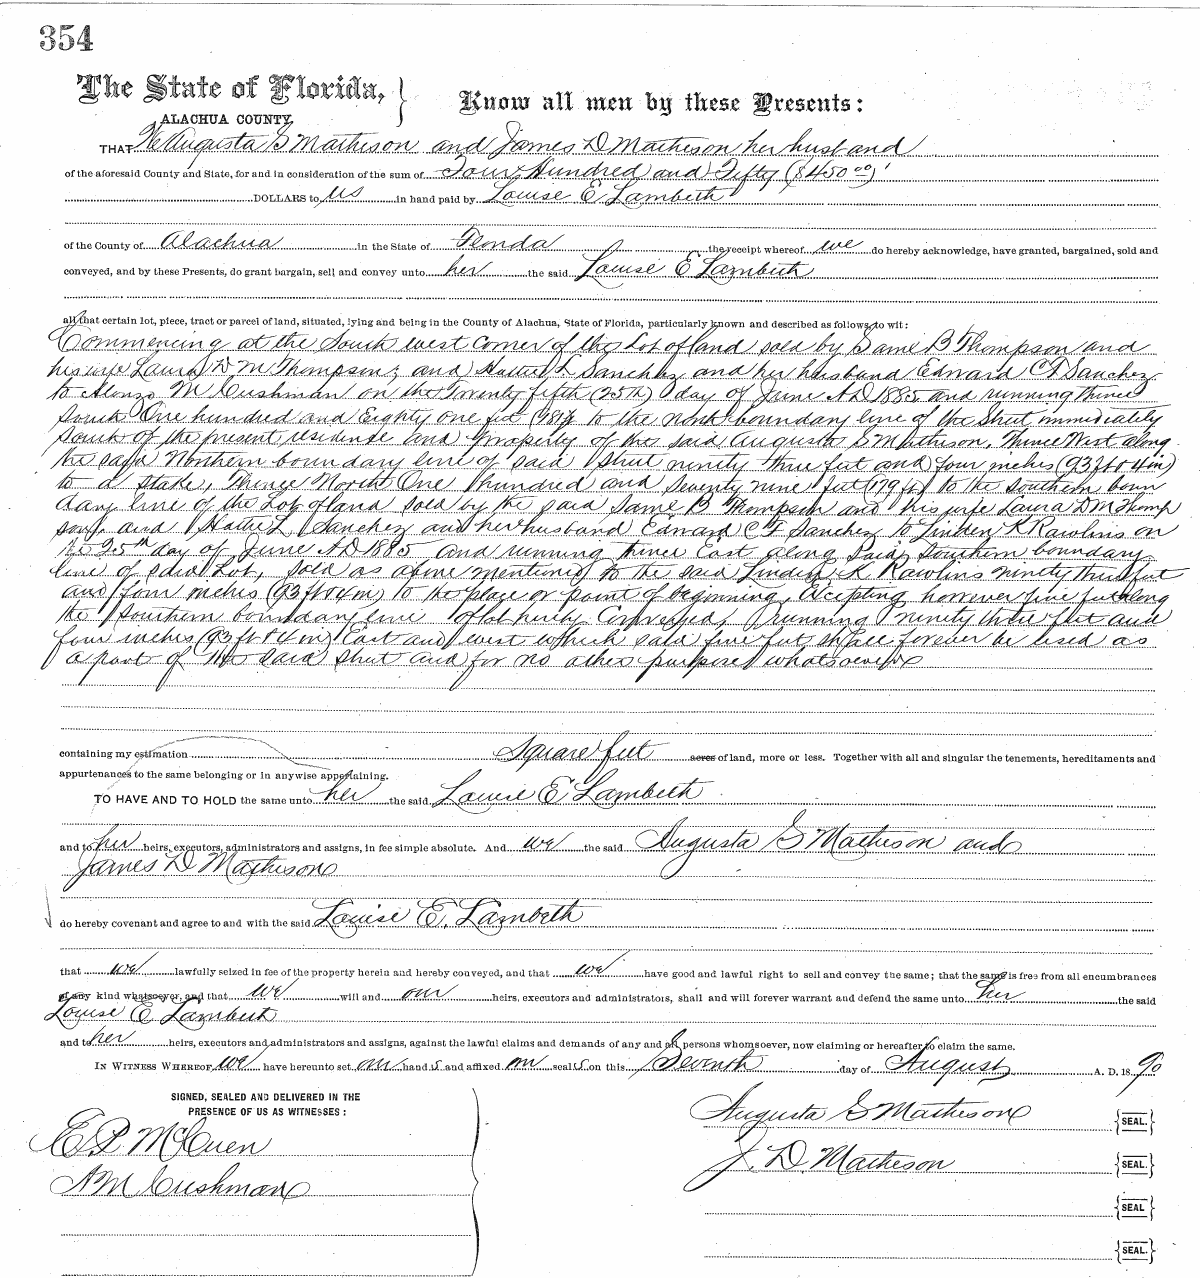 354
The State of Florida, } Know all men by these Presents:
ALACHUA COUNTY.
THAT We Augusta S Matheson and James D Matheson her husband
of the aforesaid County and State, for and in consideration of the sum of Four Hundred and Fifty ($450 00)
DOLLARS to us in hand paid by Louise E Lambeth
of the County of Alachua in the State of Florida the receipt whereof we do hereby acknowledge, have granted, bargained, sold and
conveyed, and by these Presents, do grant bargain, sell and convey unto her the said Louise E Lambeth
all that certain lot, piece, tract or parcel of land, situated, lying and being in the County of Alachua, State of Florida, particularly known and described as follows, to wit:
Commencing at the South west corner of the Lot of land sold by Same B Thompson and
his wife Laura D M Thompson, and Hattie L Sanchez and her husband Edward C F Sanchez
to Alonzo M Cushman on the Twenty fifth (25th) day of June A D 1885 and running thence
South One hundred and Eighty one feet (181ft) to the north boundary line of the Street immediately
South of the present residense and property of the said Augusta S Matheson, Thence West along
the said Northern boundary line of said Street ninety three feet and four inches (93ft & 4in)
to a stake, Thence North One hundred and Seventy nine feet (179 ft) to the Southern boun
dary line of the Lot of land sold by the said Same B Thompson and his wife Laura D M Thomp
son, and Hattie L Sanchez and her husband Edward C F Sanchez to Linden K Rawlins on
the 25th day of June A D 1885 and running thence East along said Southern boundary
line of said Lot, sold as afore mentioned to the said Linden K Rawlins ninety three feet
and four inches (93ft & 4in) to the place or point of beginning, Excepting however five feet along
the Southern boundary line of lot hereby Conveyed, running ninety three feet and
four inches (93ft & 4in) East and west which said five feet shall forever be used as
a part of the said street and for no other purpose whatsoever
containing my estimation square feet acres of land, more or less. Together with all and singular the tenements, hereditaments and
appurtenances to the same belonging or in anywise appertaining.
TO HAVE AND TO HOLD the same unto her the said Louise E Lambeth
and to her heirs, executors, administrators and assigns, in fee simple absolute. And we the said Augusta S Matheson and
James D Matheson
do hereby covenant and agree to and with the said Louise E. Lambeth
that we lawfully seized in fee of the property herein and hereby conveyed, and that we have good and lawful right to sell and convey the same; that the same is free from all encumbrances
of any kind whatsoever, and that we will and our heirs, executors and administrators, shall and will forever warrant and defend the same unto her the said
Louise E Lambeth
and to her heirs, executors and administrators and assigns, against the lawful claims and demands of any and all persons whomsoever, now claiming or hereafter to claim the same.
IN WITNESS WHEREOF, we have hereunto set our hand s and affixed our seal s on this Seventh day of August A. D. 18 90
SIGNED, SEALED AND DELIVERED IN THE
PRESENCE OF US AS WITNESSES:
Augusta S Matheson {SEAL.}
E P McCuen
J. D. Matheson {SEAL.}
A M Cushman
{SEAL}
{SEAL.}